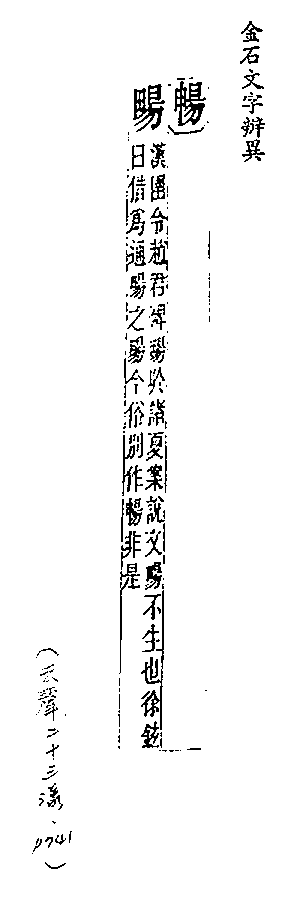 金石文字辨異
暢
畼
漢圉令趙君碑畼於諸夏案說文畼不生也徐鉉
曰借爲通畼之畼今俗別作暢非是
(去聲二十三漾、p741)